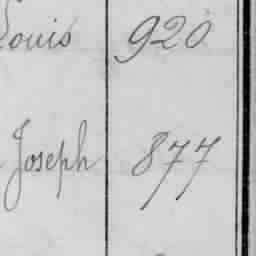 Louis 920
Joseph 877